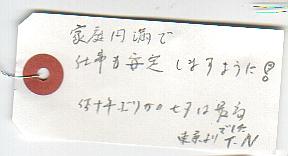 家庭円満で
仕事も安定しますように!
何十年ぶりかの七夕は最高
でした
東京より T.N